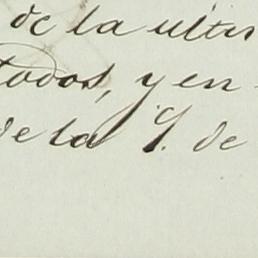 de la ultim
todos, y en
de la Y. de